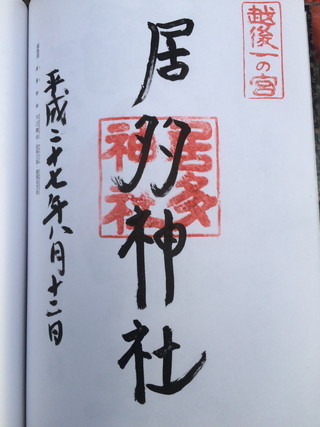 越後一の宮
居多神社
居多
神社
平成二十七年八月十二日